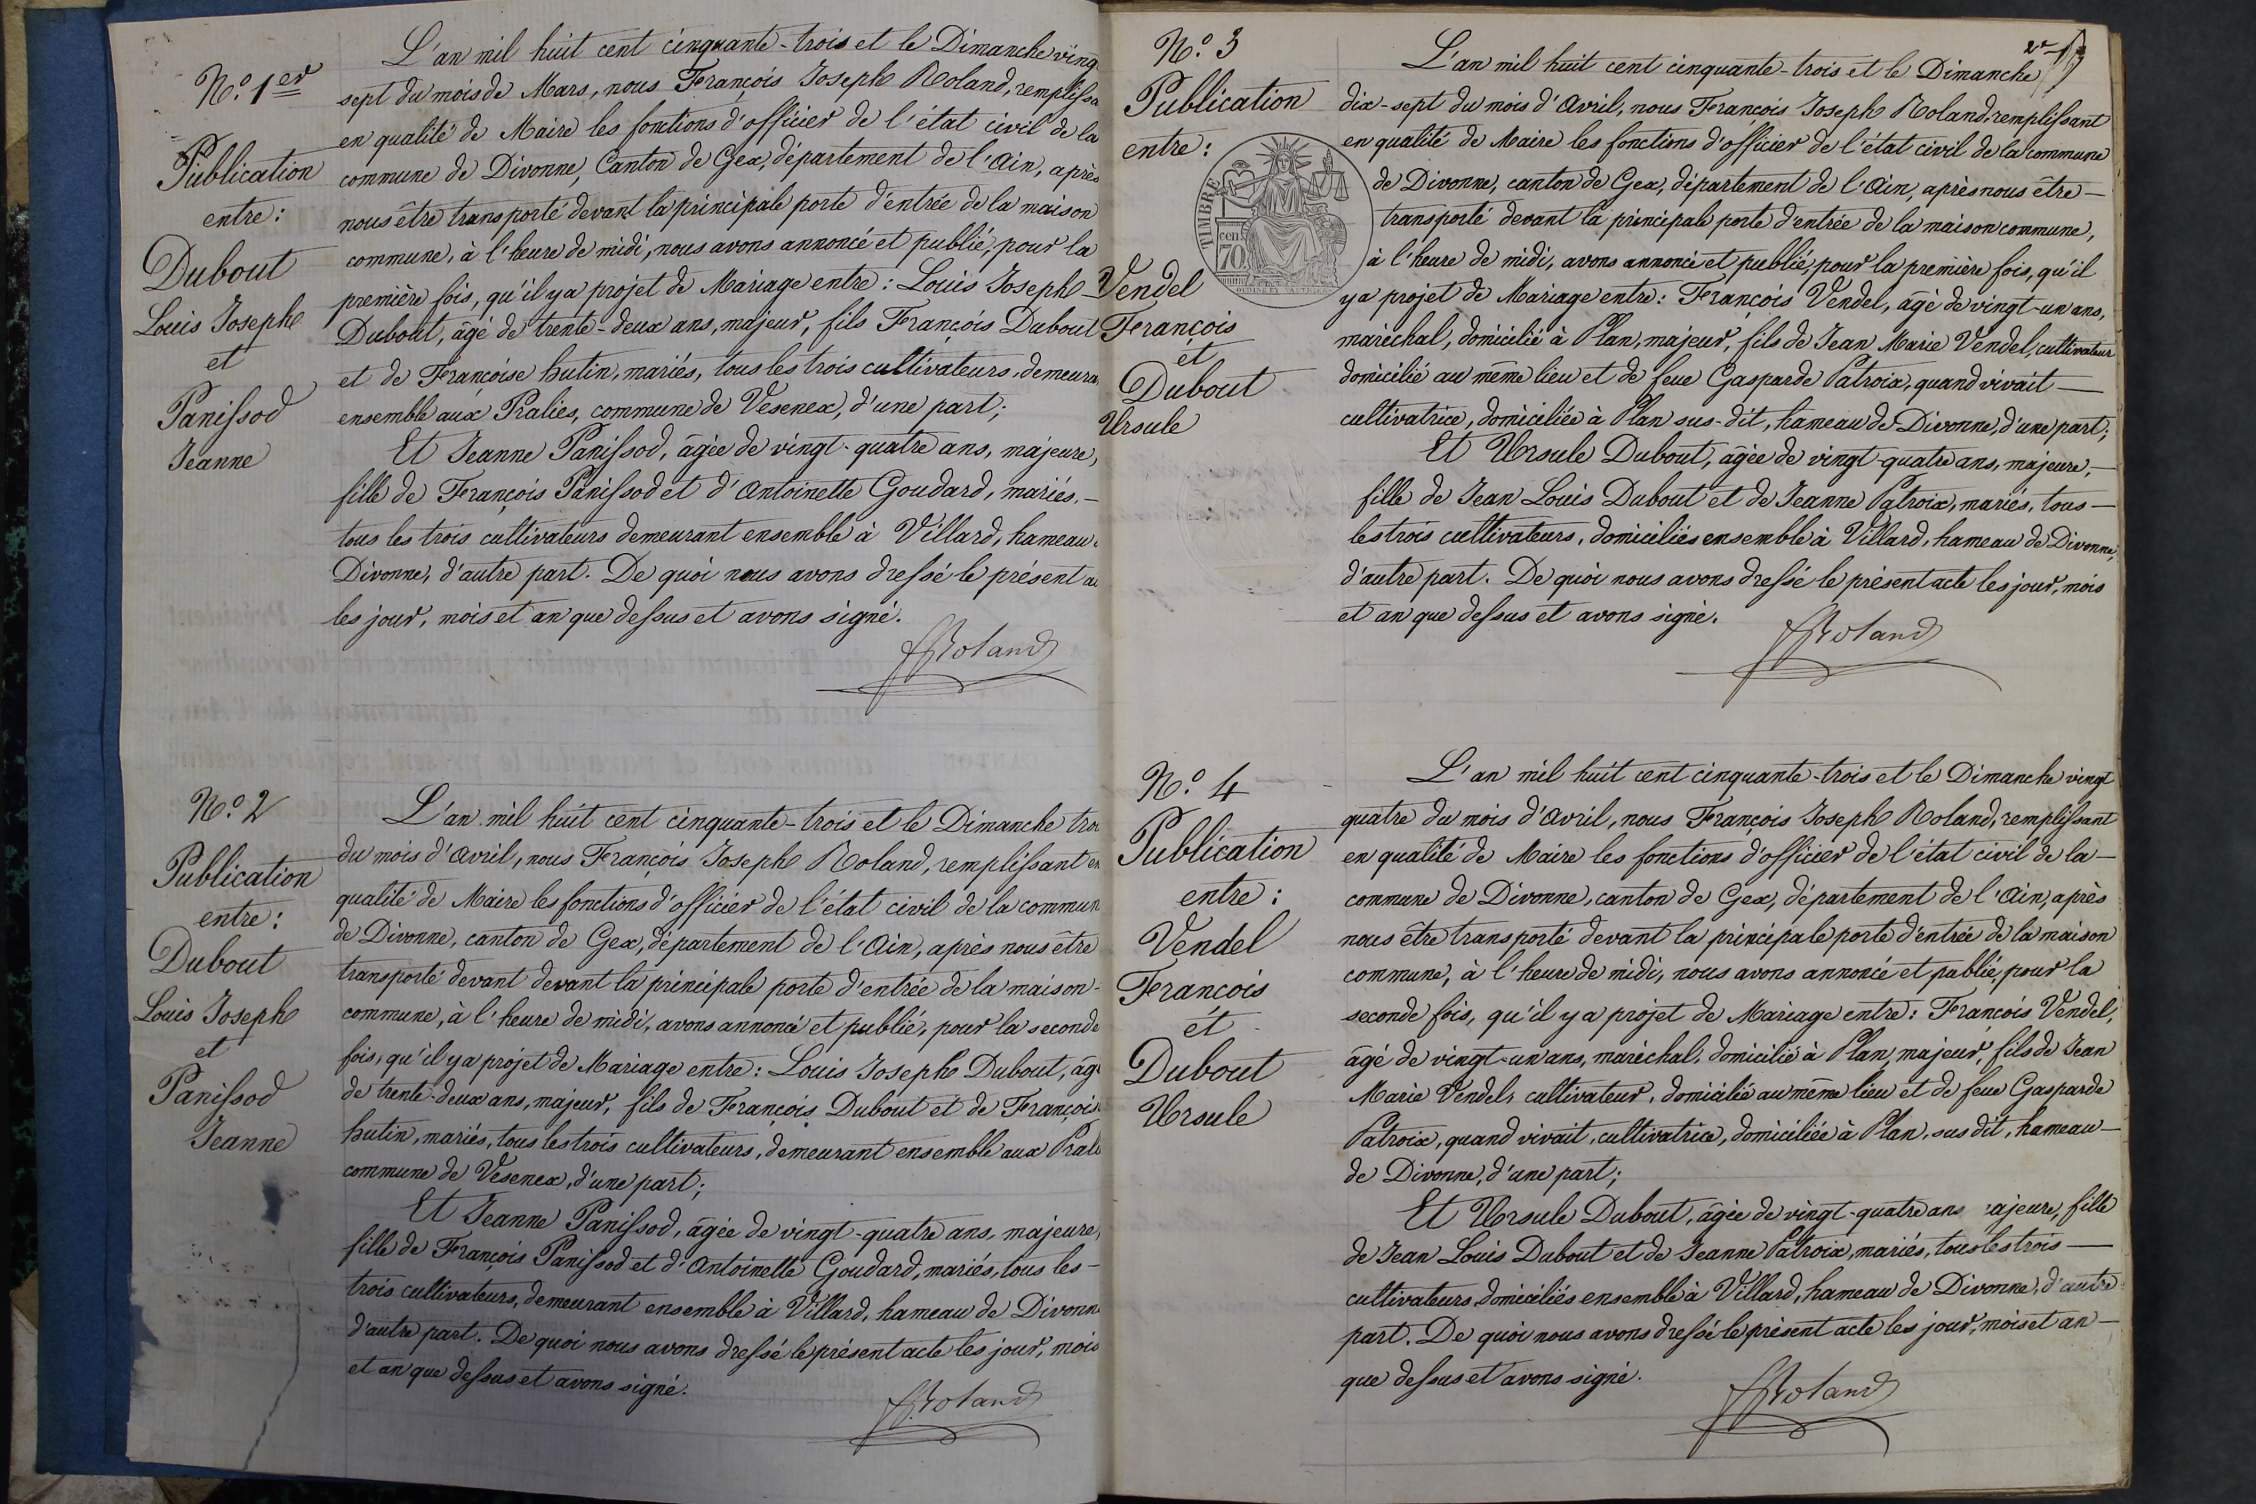 N.º 1er
Publication
entre :
Dubout
Louis Joseph
et
Panissod
Jeanne
L'an mil huit cent cinquante-trois et le Dimanche ving
sept du mois de Mars, nous François Joseph Roland, remplissa
en qualité de Maire les fonctions d'officier de l'état civil de la
commune de Divonne, Canton de Gex, département de l'Ain, après
nous être transporté devant la principale porte d'entrée de la maison
commune, à l'heure de midi, nous avons annoncé et publié, pour la
première fois, qu'il y a projet de Mariage entre : Louis Joseph
Dubout, âgé de trente-deux ans, majeur, fils François Dubout
et de Françoise hutin, mariés, tous les trois cultivateurs, demeura
ensemble aux Pralies, commune de Vesenex, d'une part ;
Et Jeanne Panissod, âgée de vingt-quatre ans, majeure,
fille de François Panissod et d'Antoinette Goudard, mariés, —
tous les trois cultivateurs demeurant ensemble à Villard, hameau
Divonne, d'autre part. De quoi nous avons dressé le présent ac
les jour, mois et an que dessus et avons signé.
Roland
N.º 2
Publication
entre :
Dubout
Louis Joseph
et
Panissod
Jeanne
L'an mil huit cent cinquante-trois et le Dimanche troi
du mois d'Avril, nous François Joseph Roland, remplissant en
qualité de Maire les fonctions d'officier de l'état civil de la commun
de Divonne, canton de Gex, département de l'Ain, après nous être
transporté devant devant la principale porte d'entrée de la maison -
commune, à l'heure de midi, avons annoncé et publié, pour la seconde
fois, qu'il y a projet de Mariage entre : Louis Joseph Dubout, âgé
de trente-deux ans, majeur, fils de François Dubout et de Françoise
hutin, mariés, tous les trois cultivateurs, demeurant ensemble aux Prali
commune de Vesenex, d'une part ;
Et Jeanne Panissod, âgée de vingt-quatre ans, majeure,
fille de François Panissod et d'Antoinette Goudard, mariés, tous les -
trois cultivateurs, demeurant ensemble à Villard, hameau de Divonne
d'autre part. De quoi nous avons dressé le présent acte les jour, mois
et an que dessus et avons signé.
Roland
N.º 3
Publication
entre :
TIMBRE
cen.
70
Vendel
François
et
Dubout
Ursule
L'an mil huit cent cinquante-trois et le Dimanche
dix-sept du mois d'Avril, nous François Joseph Roland, remplissant
en qualité de Maire les fonctions d'officier de l'état civil de la commune
de Divonne, canton de Gex, département de l'Ain, après nous être —
transporté devant la principale porte d'entrée de la maison commune,
à l'heure de midi, avons annoncé et publié, pour la première fois, qu'il
y a projet de Mariage entre : François Vendel, âgé de vingt-un ans,
maréchal, domicilié à Plan, majeur, fils de Jean Marie Vendel, cultivateur
domicilié au même lieu et de feue Gasparde Patroix, quand vivait —
cultivatrice, domiciliée à Plan sus-dit, hameau de Divonne, d'une part ;
Et Ursule Dubout, âgée de vingt-quatre ans, majeure, —
fille de Jean Louis Dubout et de Jeanne Patroix, mariés, tous —
les trois cultivateurs, domiciliés ensemble à Villard, hameau de Divonne,
d'autre part. De quoi nous avons dressé le présent acte les jour, mois
et an que dessus et avons signé.
Roland
N.º 4
Publication
entre :
Vendel
François
et
Dubout
Ursule
L'an mil huit cent cinquante-trois et le Dimanche vingt
quatre du mois d'Avril, nous François Joseph Roland, remplissant
en qualité de Maire les fonctions d'officier de l'état civil de la —
commune de Divonne, canton de Gex, département de l'Ain, après
nous être transporté devant la principale porte d'entrée de la maison
commune, à l'heure de midi, nous avons annoncé et publié, pour la
seconde fois, qu'il y a projet de Mariage entre : François Vendel,
âgé de vingt-un ans, maréchal, domicilié à Plan, majeur, fils de Jean
Marie Vendel, cultivateur, domicilié au même lieu et de feue Gasparde
Patroix, quand vivait, cultivatrice, domiciliée à Plan, sus dit, hameau —
de Divonne, d'une part ;
Et Ursule Dubout, âgée de vingt-quatre ans ajeure, fille
de Jean Louis Dubout et de Jeanne Patroix, mariés, tous les trois —
cultivateurs, domiciliés ensemble à Villard, hameau de Divonne, d'autre
part. De quoi nous avons dressé le présent acte les jour, mois et an —
que dessus et avons signé.
Roland